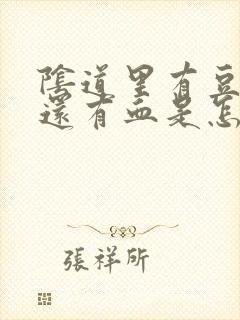 陰道里有豆
還有血是怎
張祥所